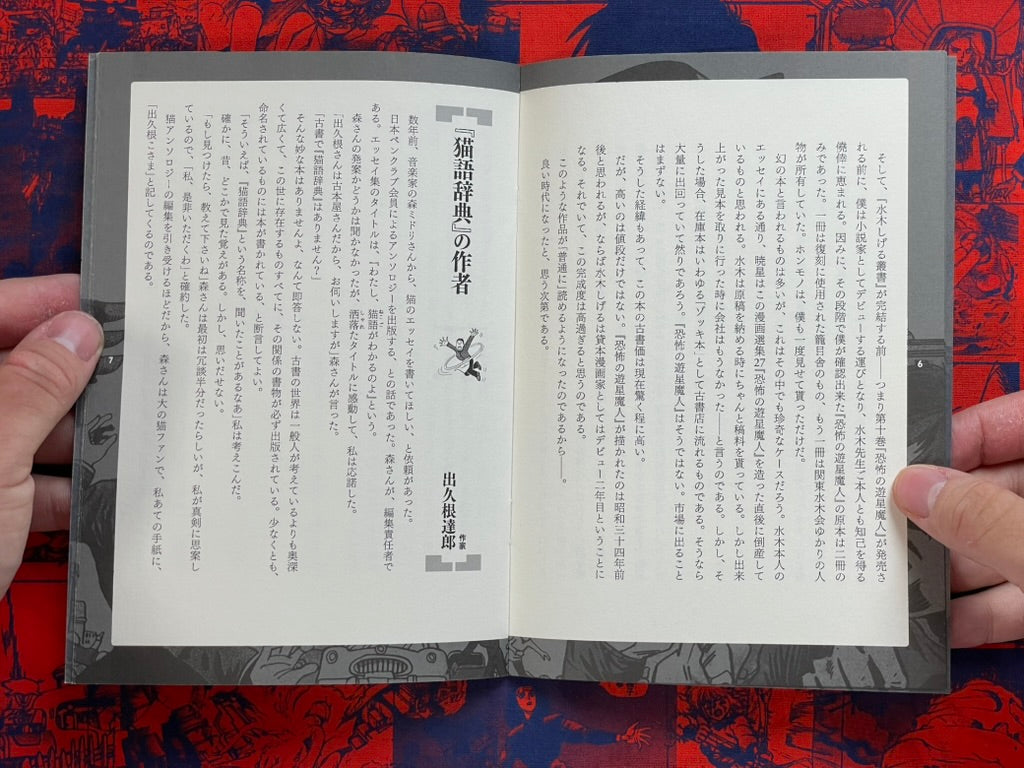 そして、『水木しげる叢書』が完結する前――つまり第十巻『恐怖の遊星魔人』が発売さ
れる前に、僕は小説家としてデビューする運びとなり、水木先生ご本人とも知己を得る
僥倖に恵まれる。因みに、その段階で僕が確認出来た『恐怖の遊星魔人』の原本は二冊の
みであった。一冊は復刻に使用された籠目舎のもの、もう一冊は関東水木会ゆかりの人
物が所有していた。ホンモノは、僕も一度見せて貰っただけだ。
幻の本と言われるものは多いが、これはその中でも珍奇なケースだろう。水木本人の
エッセイにある通り、暁星はこの漫画選集27『恐怖の遊星魔人』を造った直後に倒産して
いるものと思われる。水木は原稿を納める時にちゃんと稿料を貰っている。しかし出来
上がった見本を取りに行った時に会社はもうなかった――と言うのである。しかし、そ
うした場合、在庫本はいわゆる「ゾッキ本」として古書店に流れるものである。そうなら
大量に出回っていて然りであろう。『恐怖の遊星魔人』はそうではない。市場に出ること
はまずない。
そうした経緯もあって、この本の古書価は現在驚く程に高い。
だが、高いのは値段だけではない。『恐怖の遊星魔人』が描かれたのは昭和三十四年前
後と思われるが、ならば水木しげるは貸本漫画家としてはデビュー二年目ということに
なる。それでいて、この完成度は高過ぎると思うのである。
このような作品が「普通に」読めるようになったのであるから――。
良い時代になったと、思う次第である。
6
『猫語辞典』の作者
出久根達郎 作家
数年前、音楽家の森ミドリさんから、猫のエッセイを書いてほしい、と依頼があった。
日本ペンクラブ会員によるアンソロジーを出版する、との話であった。森さんが、編集責任者で
ある。エッセイ集のタイトルは、『わたし、猫語がわかるのよ』という。
森さんの発案かどうかは聞かなかったが、洒落たタイトルに感動して、私は応諾した。
「出久根さんは古本屋さんだから、お伺いしますが」森さんが言った。
「古書で『猫語辞典』はありません？」
そんな妙な本はありませんよ、なんて即答しない。古書の世界は一般人が考えているよりも奥深
くて広くて、この世に存在するものすべてに、その関係の書物が必ず出版されている。少なくとも、
命名されているものには本が書かれている、と断言してよい。
「そういえば、『猫語辞典』という名称を、聞いたことがあるなあ」私は考えこんだ。
確かに、昔、どこかで見た覚えがある。しかし、思いだせない。
「もし見つけたら、教えて下さいね」森さんは最初は冗談半分だったらしいが、私が真剣に思案し
ているので、「私、是非いただくわ」と確約した。
猫アンソロジーの編集を引き受けるほどだから、森さんは大の猫ファンで、私あての手紙に、
「出久根こさま」と記してくるのである。
7